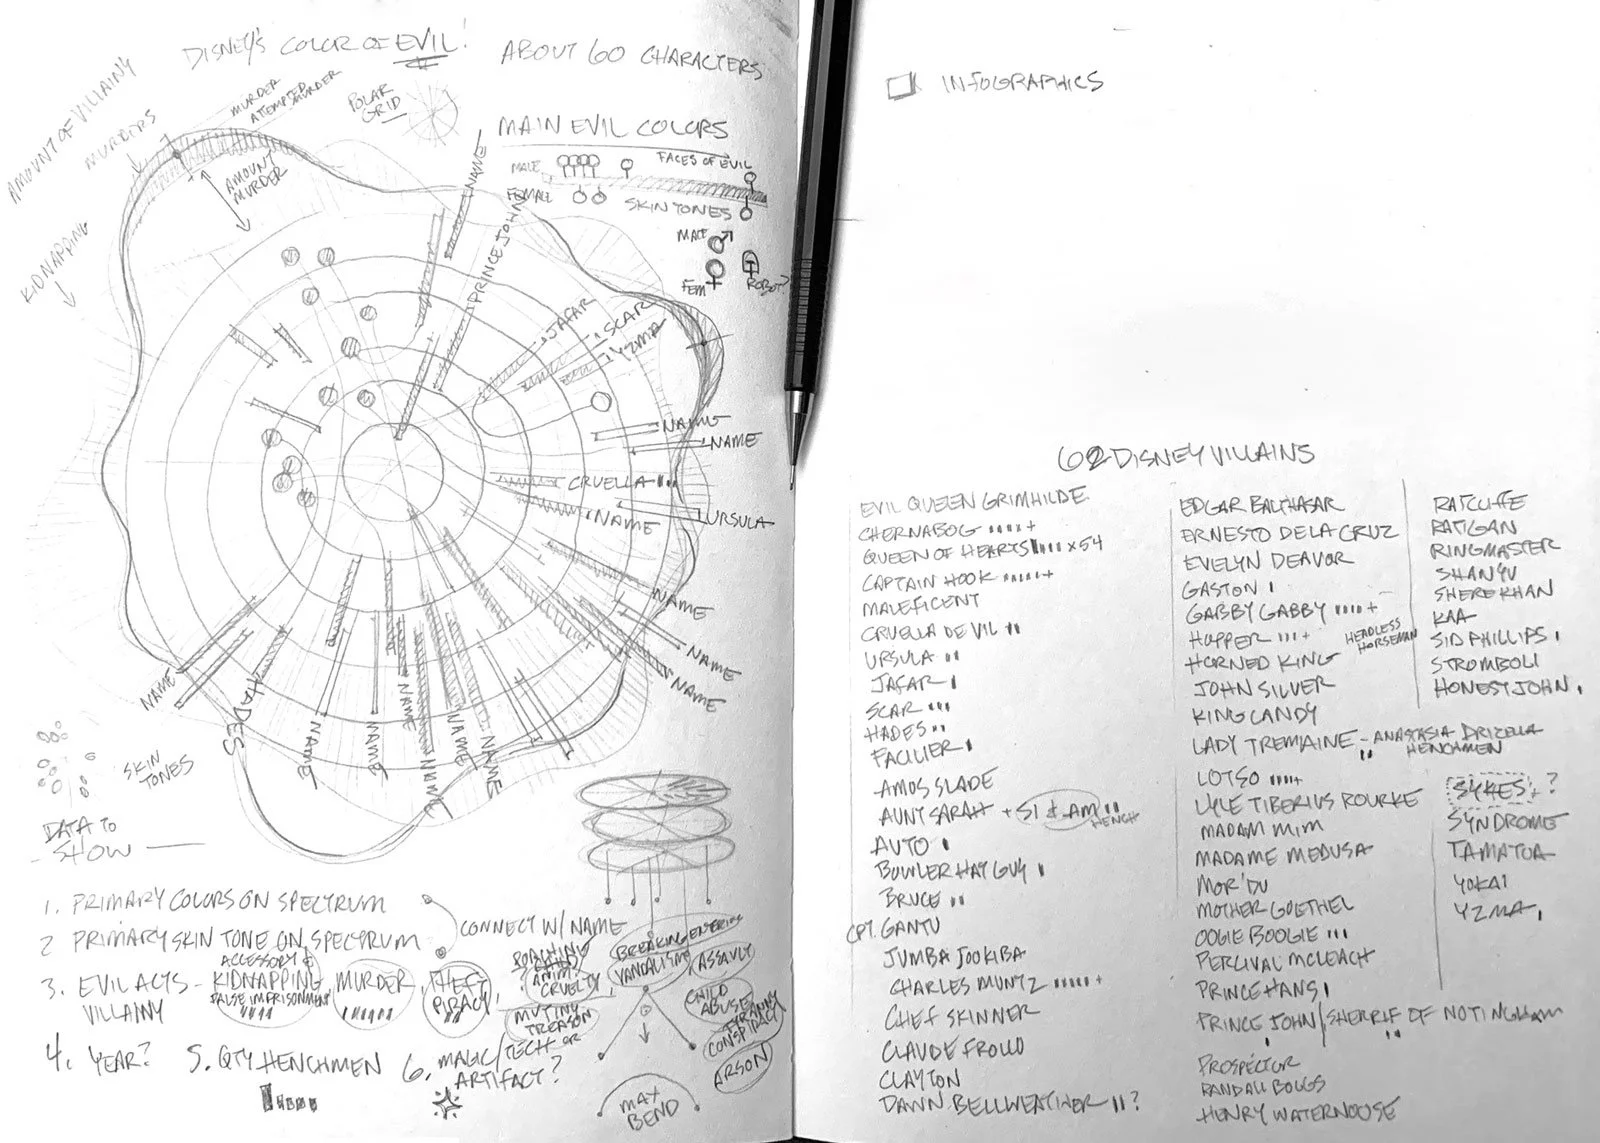 DISNEY'S COLOR OF EVIL!
ABOUT 60 CHARACTERS
AMOUNT OF VILLAINY
MURDERS
KIDNAPPING
MURDER
ATTEMPTED MURDER
AMOUNT
MURDER
POLAR
GRID
MAIN EVIL COLORS
MALE
FACES OF EVIL
FEMALE
SKIN TONES
MALE
FEM
ROBOT?
NAME
PRINCE JOHN
JAFAR
SCAR
YZMA
NAME
NAME
CRUELLA
NAME
URSULA
NAME
NAME
NAME
NAME
HADES
NAME
NAME
NAME
NAME
NAME
NAME
SKIN
TONES
DATA TO
SHOW
1. PRIMARY COLORS ON SPECTRUM
2 PRIMARY SKIN TONE ON SPECTRUM
CONNECT W/ NAME
3. EVIL ACTS - KIDNAPPING, MURDER, THEFT
VILLAINY
ACCESSORY
FALSE IMPRISONMENT
PIRACY
POACHING
CRUELTY
MUTINY
TREASON
BREAKING ENTERING
VANDALISM
ASSAULT
CHILD
ABUSE
TYRANNY
CONSPIRACY
ARSON
4. YEAR?
5. QTY HENCHMEN
6. MAGIC/TECH OR
ARTIFACT?
MAX
BEND
INFOGRAPHICS
62 DISNEY VILLAINS
EVIL QUEEN GRIMHILDE
CHERNABOG +
QUEEN OF HEARTS x54
CAPTAIN HOOK +
MALEFICENT
CRUELLA DE VIL
URSULA
JAFAR
SCAR
HADES
FACILIER
AMOS SLADE
AUNT SARAH + SI & AM
HENCH
AUTO
BOWLER HAT GUY
BRUCE
CPT. GANTU
JUMBA JOOKIBA
CHARLES MUNTZ +
CHEF SKINNER
CLAUDE FROLLO
CLAYTON
DAWN BELLWEATHER ?
EDGAR BALTHASAR
ERNESTO DE LA CRUZ
EVELYN DEAVOR
GASTON
GABBY GABBY +
HOPPER +
HEADLESS
HORSEMAN
HORNED KING
JOHN SILVER
KING CANDY
LADY TREMAINE - ANASTASIA DRIZELLA
HENCHMEN
LOTSO +
LYLE TIBERIUS ROURKE
MADAM MIM
MADAME MEDUSA
MOR'DU
MOTHER GOETHEL
OOGIE BOOGIE
PERCIVAL MCLEACH
PRINCE HANS
PRINCE JOHN/SHERRIF OF NOTINGHAM
PROSPECTOR
RANDALL BOGGS
HENRY WATERNOOSE
RATCLIFFE
RATIGAN
RINGMASTER
SHAN YU
SHERE KHAN
KAA
SID PHILLIPS
STROMBOLI
HONEST JOHN
SYKES ?
SYNDROME
TAMATOA
YOKAI
YZMA